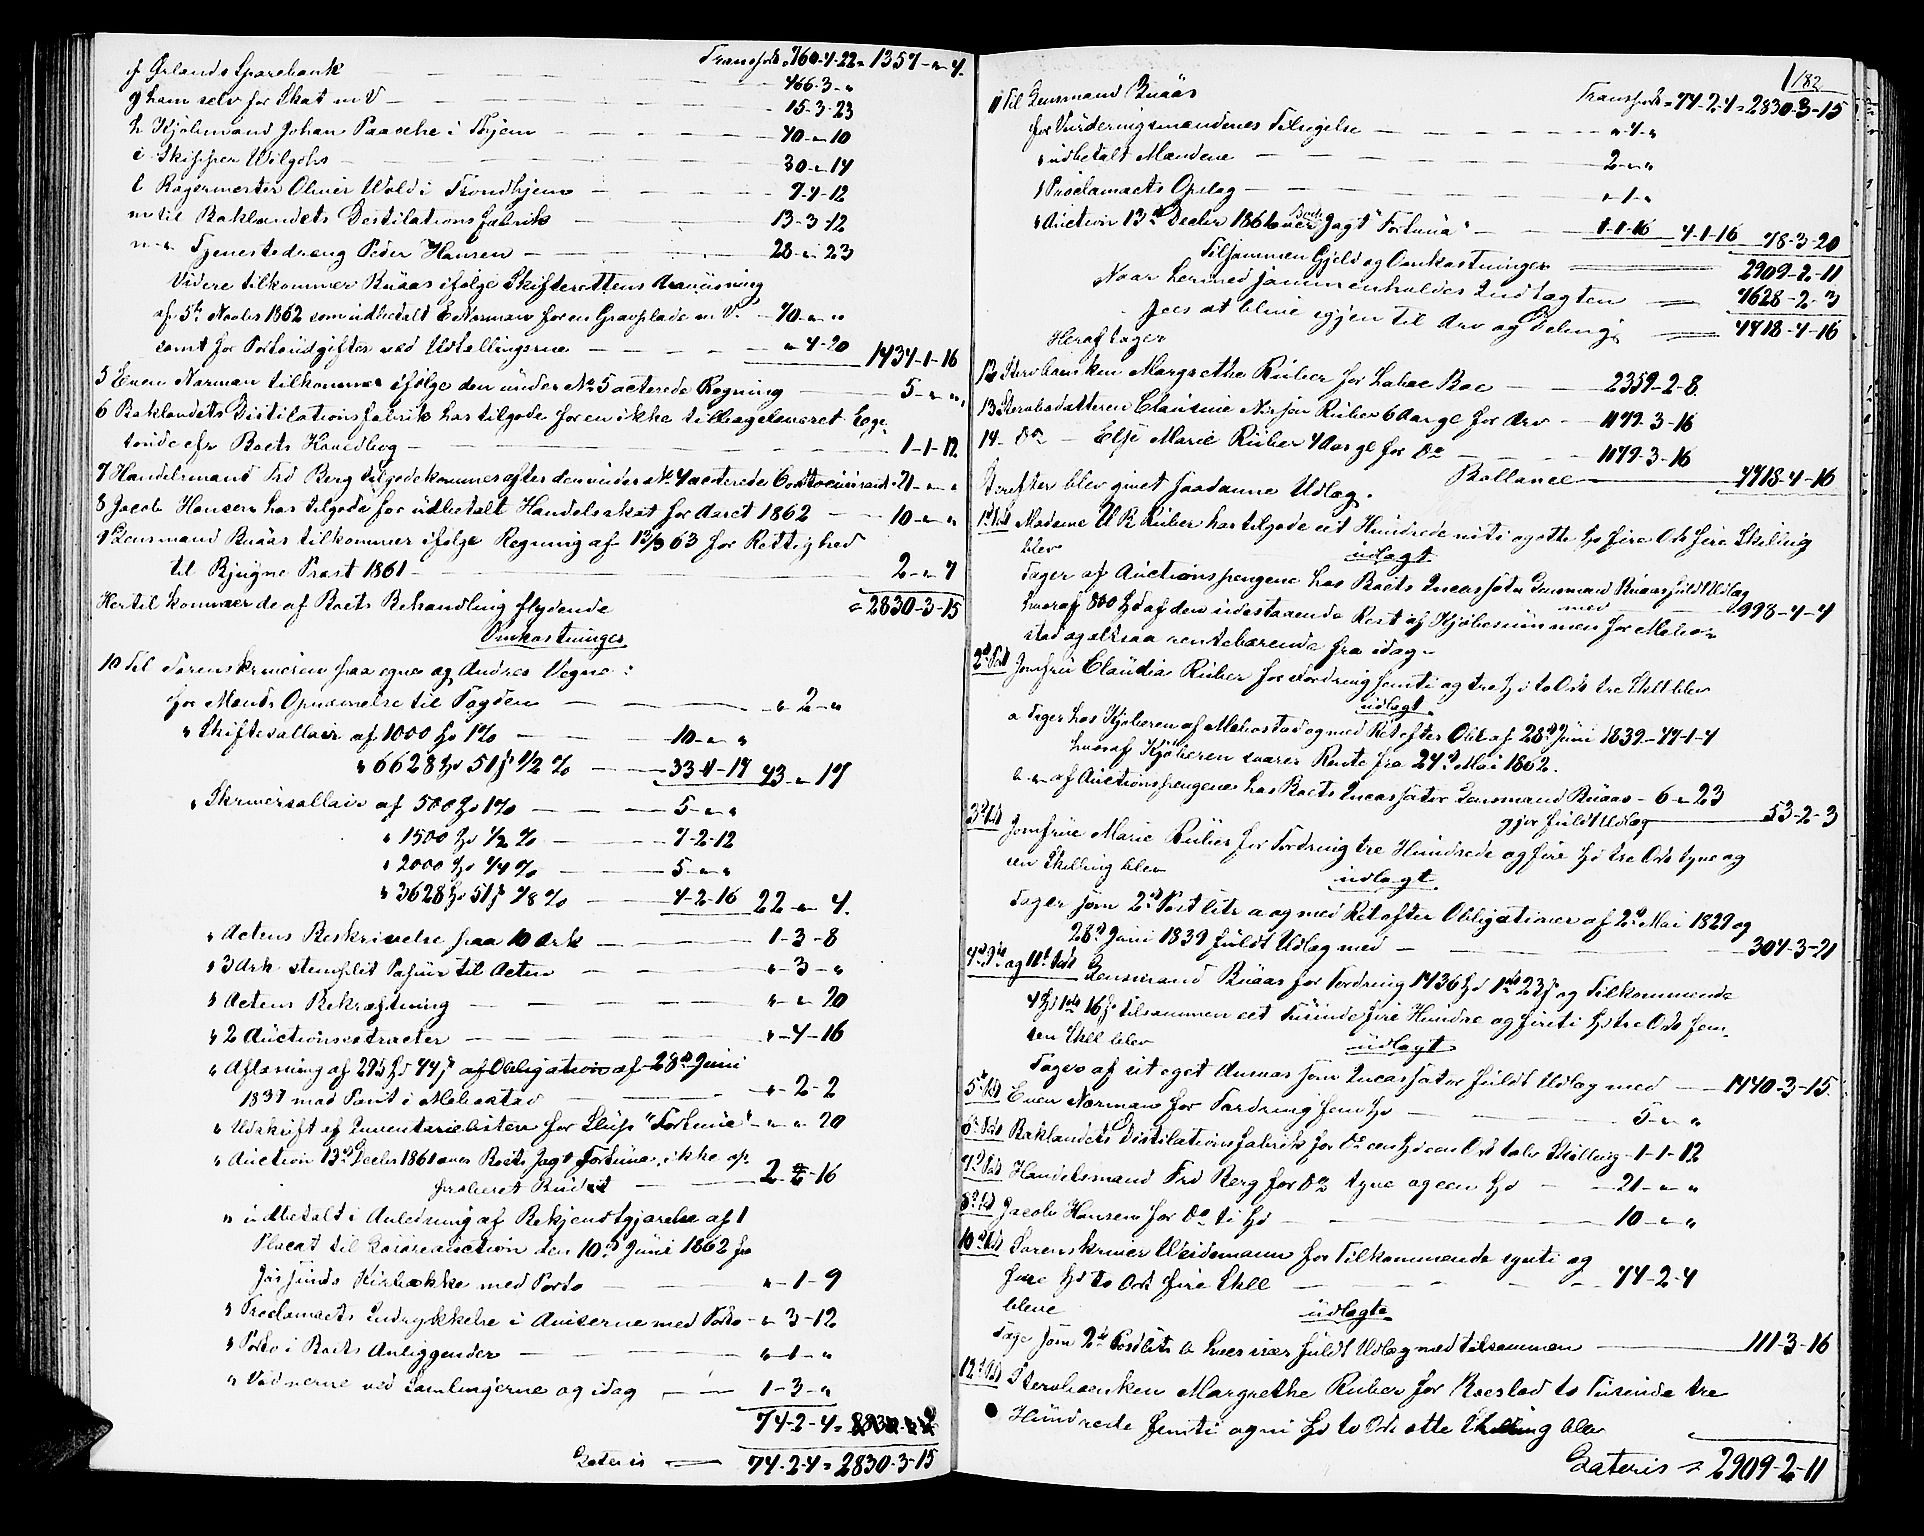 Transport 760-4-22 = 1357-"-4.
f Ørlands Sparebank — 466-3-"
g ham selv for Skat m V — 15-3-23
h Kjøbmand Johan Paasche i Thjem — 40-"-10
i Skipper Wilgohs — 30-"-14
l Bagermester Oluier Wold i Trondhjem — 7-4-12
m til Baklandets Destilationsfabrik — 13-3-12
n " Tjenestedreng Peder Hansen — 28-"-23
Videre tilkommer Buaas ifølge Skifterettens Anviisning
af 5te Novbr 1862 som udbetalt E Norman for en Gravplade m V. — 40-"-"
samt for Portoudgifter ved Udtællingerne — "-4-20 1434-1-16
5 Even Norman tilkommer ifølge den under No 5 acterede Regning — 5-"-"
6 Baklandets Distilationsfabrik har tilgode for en ikke tilbageleveret Ege
tønde efr Boets Handlbog — 1-1-12
7 Handelsmand Frd Berg tilgodekommer efter den under No 4 acterede Contocourant - 21-"-"
8 Jacob Hansen har tilgode for udbetalt Handelsskat for Aaret 1862 — 10-"-"
9 Lensmand Buaas tilkommer ifølge Regning af 13/3 63 for Rettighed
til Bjugne Præst 1861 — 2-"-7
Hertil kommer de af Boets Behandling flydende = 2830-3-15
Omkostninger
10 Til Sorenskriveren paa egne og Andres Vegne:
for Mands Opnævnelse til Taxten — "-2-"
" Skiftesallair af 1000 Spd 1% — 10-"-"
" 6628 Spd 51 s 1/2 % — 33-"-17 43-"-17
" Skriversallair af 500 Spd 1% — 5-"-"
" 1500 Spd 1/2 % — 7-2-12
" 2000 Spd 1/4 % — 5-"-"
" 3628 Spd 51 s 1/8 % — 4-2-16 22-"-4.
" Actens Beskrivelse paa 10 Ark — 1-3-8
" 3 Ark stemplet Papiir til Acten — "-3-"
" Actens Bekræftning — "-"-20
" 2 Auctionsextracter — "-4-16
" Aflæsning af 295 Spd 44 s af Obligation af 28de Juni
1839 med Pant i Mebostad — "-2-2
" Udskrift af Inventarielisten for Slup "Fortuna" — "-"-20
" Auction 13de Decbr 1861 over Boets Jagt Fortuna, ikke ap-
proberet Budet — 2-4-16
" udbetalt i Anledning af Bekjendtgjørelse af 1
Placat til Løsøreauction den 10de Juni 1862 fra
Jøssunds Kirkebakke med Porto — "-1-9
" Proclamaets Indrykkelse i Aviserne med Porto — "-3-12
" Porto i Boets Anliggender — "-1-"
" Vidnerne ved Samlingerne og idag — 1-3-"
74-2-4 =
Lateris — 74-2-4 = 2830-3-15
182
Transport = 74-2-4 = 2830-3-15
11 Til Lensmand Buaas
for Vurderingsmændenes Tilsigelse — "-4-"
" udbetalt Mændene — 2-"-"
" Proclamaets Opslag — "-1-"
" Auction 13de Decbr 1861 over Boets Jagt "Fortuna" — 1-1-16 4-1-16 78-3-20
Tilsammen Gjeld og Omkostninger — 2909-2-11
Naar hermed sammenholdes Indtægten — 7628-2-3
sees at blive igjen til Arv og Deling — 4718-4-16
Heraf tager
12 Stervboenken Margrethe Riiber for halve Boe — 2359-2-8.
13 Stervbodatteren Claudine Nirson Riiber 6 Aar gl for Arv — 1179-3-16
14. Do — Else Marie Riiber 4 Aar gl for Do — 1179-3-16
Ballance — 4718-4-16
Derefter blev givet saadanne Udlæg.
1st Post Madame U R Riiber har tilgode eet Hundrede niti og otte Spd fire Ort fire Skilling
blev
udlagt
Tager af Auctionspengene hos Boets Incassator Lensmand Buaas fuldt Udlæg
med — 998-4-4
hvoraf 800 Spd af den udestaaende Rest af Kjøbesummen for Mebo-
stad og altsaa rentebærende fra idag.
2d Post Jomfru Claudia Riiber for Fordring femti og tre Spd to Ort tre Skill blev
udlagt
a Tager hos Kjøberen af Mebostad og med Ret efter Obl. af 28de Juni 1839 — 47-1-4
hvoraf Kjøberen svarer Rente fra 24de Mai 1862.
b " af Auctionspengene hos Boets Incassator Lensmand Buaas — 6-"-23
gjør fuldt Udlæg — 53-2-3
3d Post Jomfrue Marie Riiber for Fordring tre Hundrede og fire Spd tre Ort tyve og
een Skilling blev
udlagt
Tager som 2den Post litr a og med Ret efter Obligationer af 2den Mai 1829 og
28de Juni 1839 fuldt Udlæg med — 304-3-21
4de, 9de og 11te Post Lensmand Buaas for Fordring 1436 Spd 1 ort 23 s og Tilkommende
4 Spd 1 ort 16 s tilsammen eet Tusinde fire Hundre og firti Spd tre Ort fem-
ten Skill blev
udlagt
Tages af sit eget Ansvar som Incassator fuldt Udlæg med — 1440-3-15.
5te Post Even Norman for Fordring fem Spd — 5-"-"
6te Post Baklandets Distilationsfabrik for Do een Spd een Ort tolv Skilling - 1-1-12
7de Post Handelsmand Frd Berg for Do tyve og een Spd — 21-"-"
8de Post Jacob Hansen for Do ti Spd — 10-"-"
10de Post Sorenskriver Weidemann for Tilkommende sytti og
fire Spd to Ort fire Skill — 74-2-4
bleve
udlagte
Tage som 2de Post litr b hver især fuldt Udlæg med tilsammen — 111-3-16
12te Post Stervboenken Margrethe Riiber for Boeslod to Tusinde tre
Hundrede femti og ni Spd to Ort otte Skilling blev
Lateris = 2909-2-11